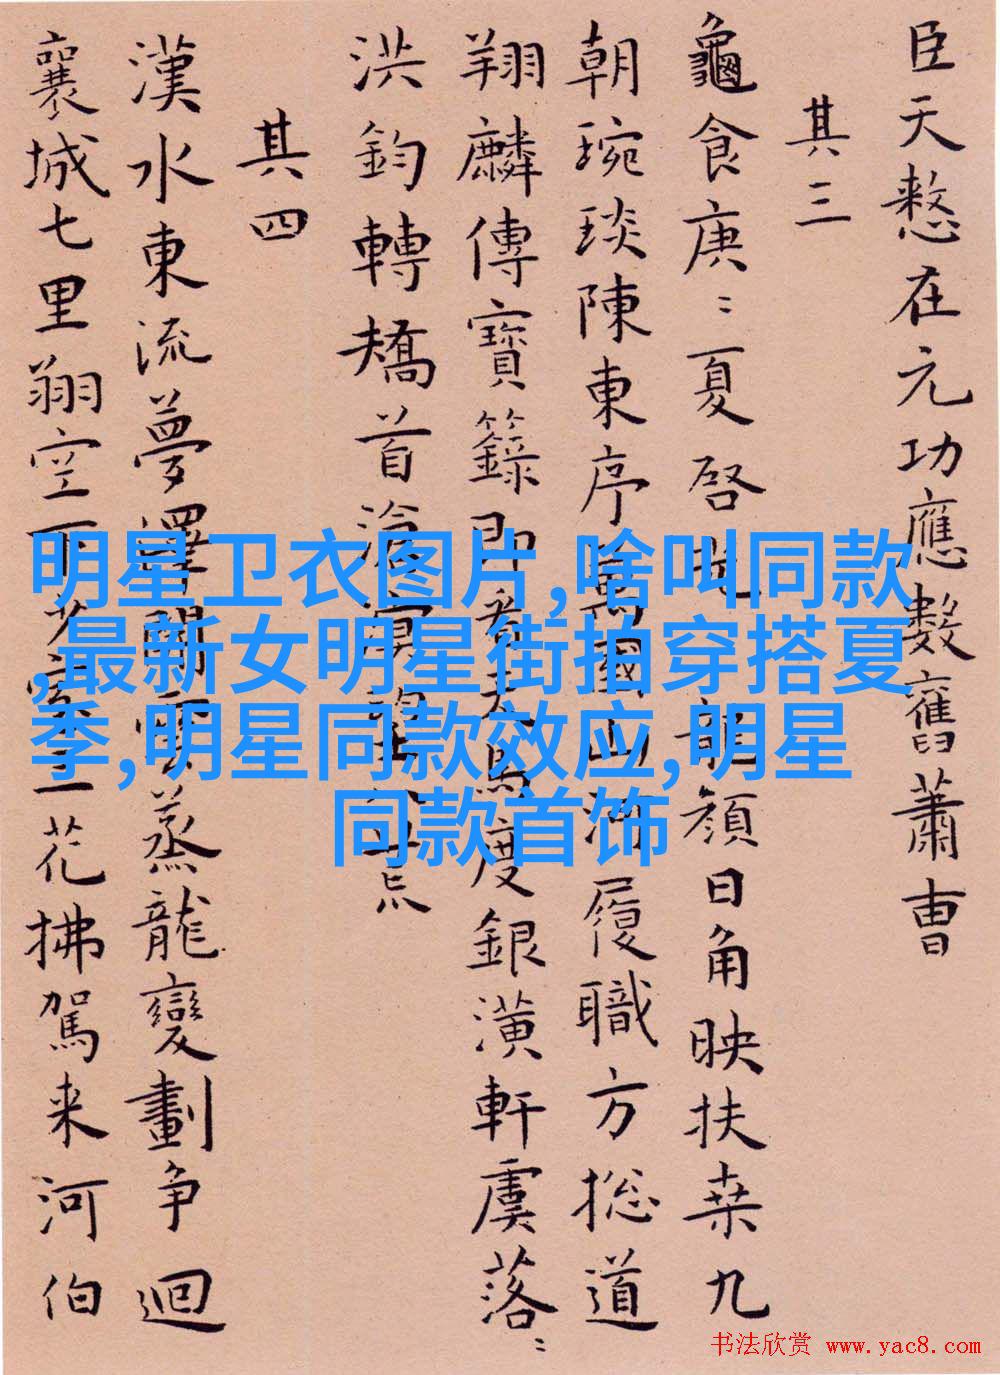 臣天憗在元功應數舊蕭曹
其三
龜食庚〻夏啓龍顏日角映扶桑九
朝琬琰陳東序萬國山河履職方揔道
翔麟傳寶籙即看天馬度銀潢軒虞落〻
洪鈞轉矯首滄溟八荒
其四
漢水東流夢澤開雲蒸龍變劃争迴
襄城七里翔空下花拂駕来河伯
明星卫衣图片,啥叫同款
,最新女明星街拍穿搭夏
季,明星同款效应,明星
同款首饰
书法欣赏 www.yac8.com